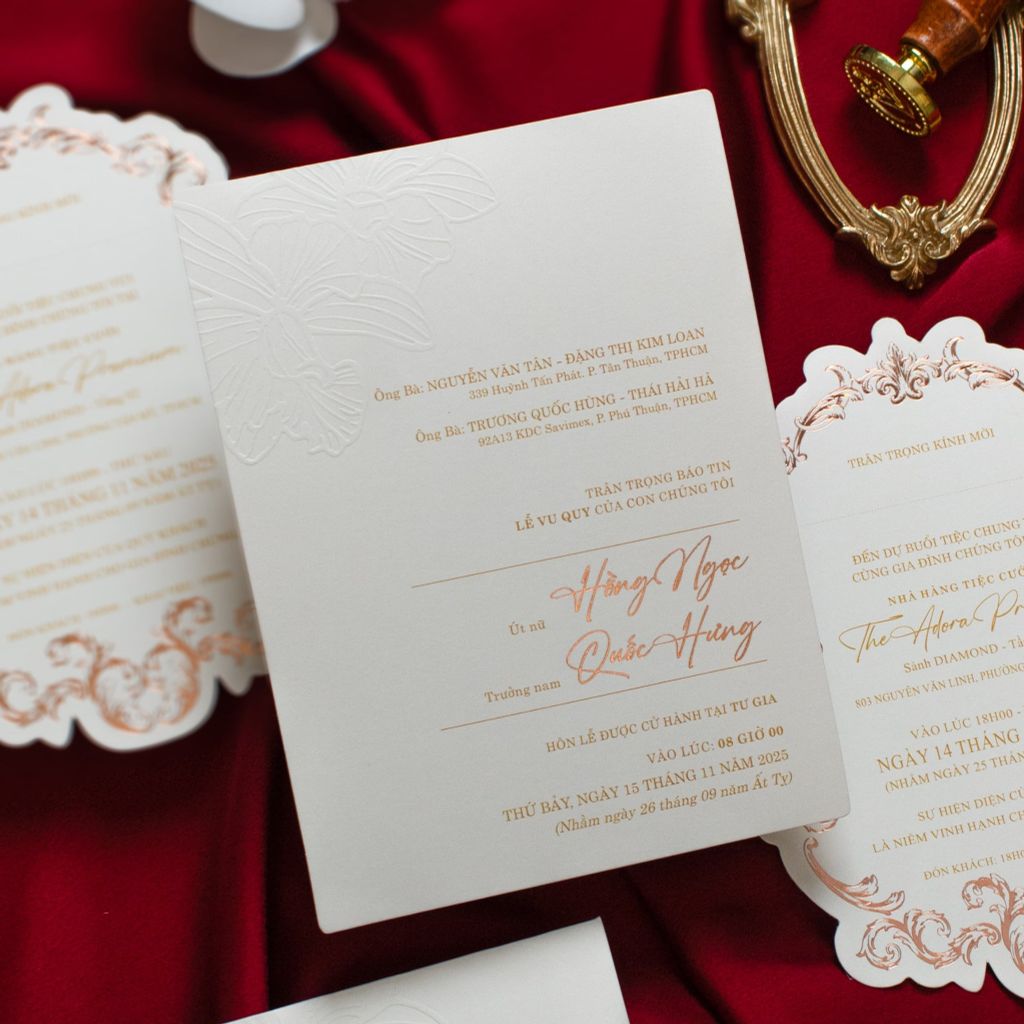 Ông Bà: NGUYỄN VĂN TÂN - ĐẶNG THỊ KIM LOAN
339 Huỳnh Tấn Phát. P. Tân Thuận, TPHCM
Ông Bà: TRƯƠNG QUỐC HÙNG - THÁI HẢI HÀ
92A13 KDC Savimex, P. Phú Thuận, TPHCM
TRÂN TRỌNG BÁO TIN
LỄ VU QUY CỦA CON CHÚNG TÔI
Hồng Ngọc
Út nữ
Quốc Hưng
Trưởng nam
HÔN LỄ ĐƯỢC CỬ HÀNH TẠI TƯ GIA
VÀO LÚC: 08 GIỜ 00
THỨ BẢY, NGÀY 15 THÁNG 11 NĂM 2025
(Nhằm ngày 26 tháng 09 năm Ất Tỵ)
TRÂN TRỌNG KÍNH MỜI
ĐẾN DỰ BUỔI TIỆC CHUNG
CÙNG GIA ĐÌNH CHÚNG TÔI
NHÀ HÀNG TIỆC CƯỚ
The Adora Pr
Sảnh DIAMOND - Tầ
803 NGUYỄN VĂN LINH, PHƯỜNG
VÀO LÚC 18H00 -
NGÀY 14 THÁNG
(NHẰM NGÀY 25 THÁN
SỰ HIỆN DIỆN CỦ
LÀ NIỀM VINH HẠNH CH
ĐÓN KHÁCH: 18H0